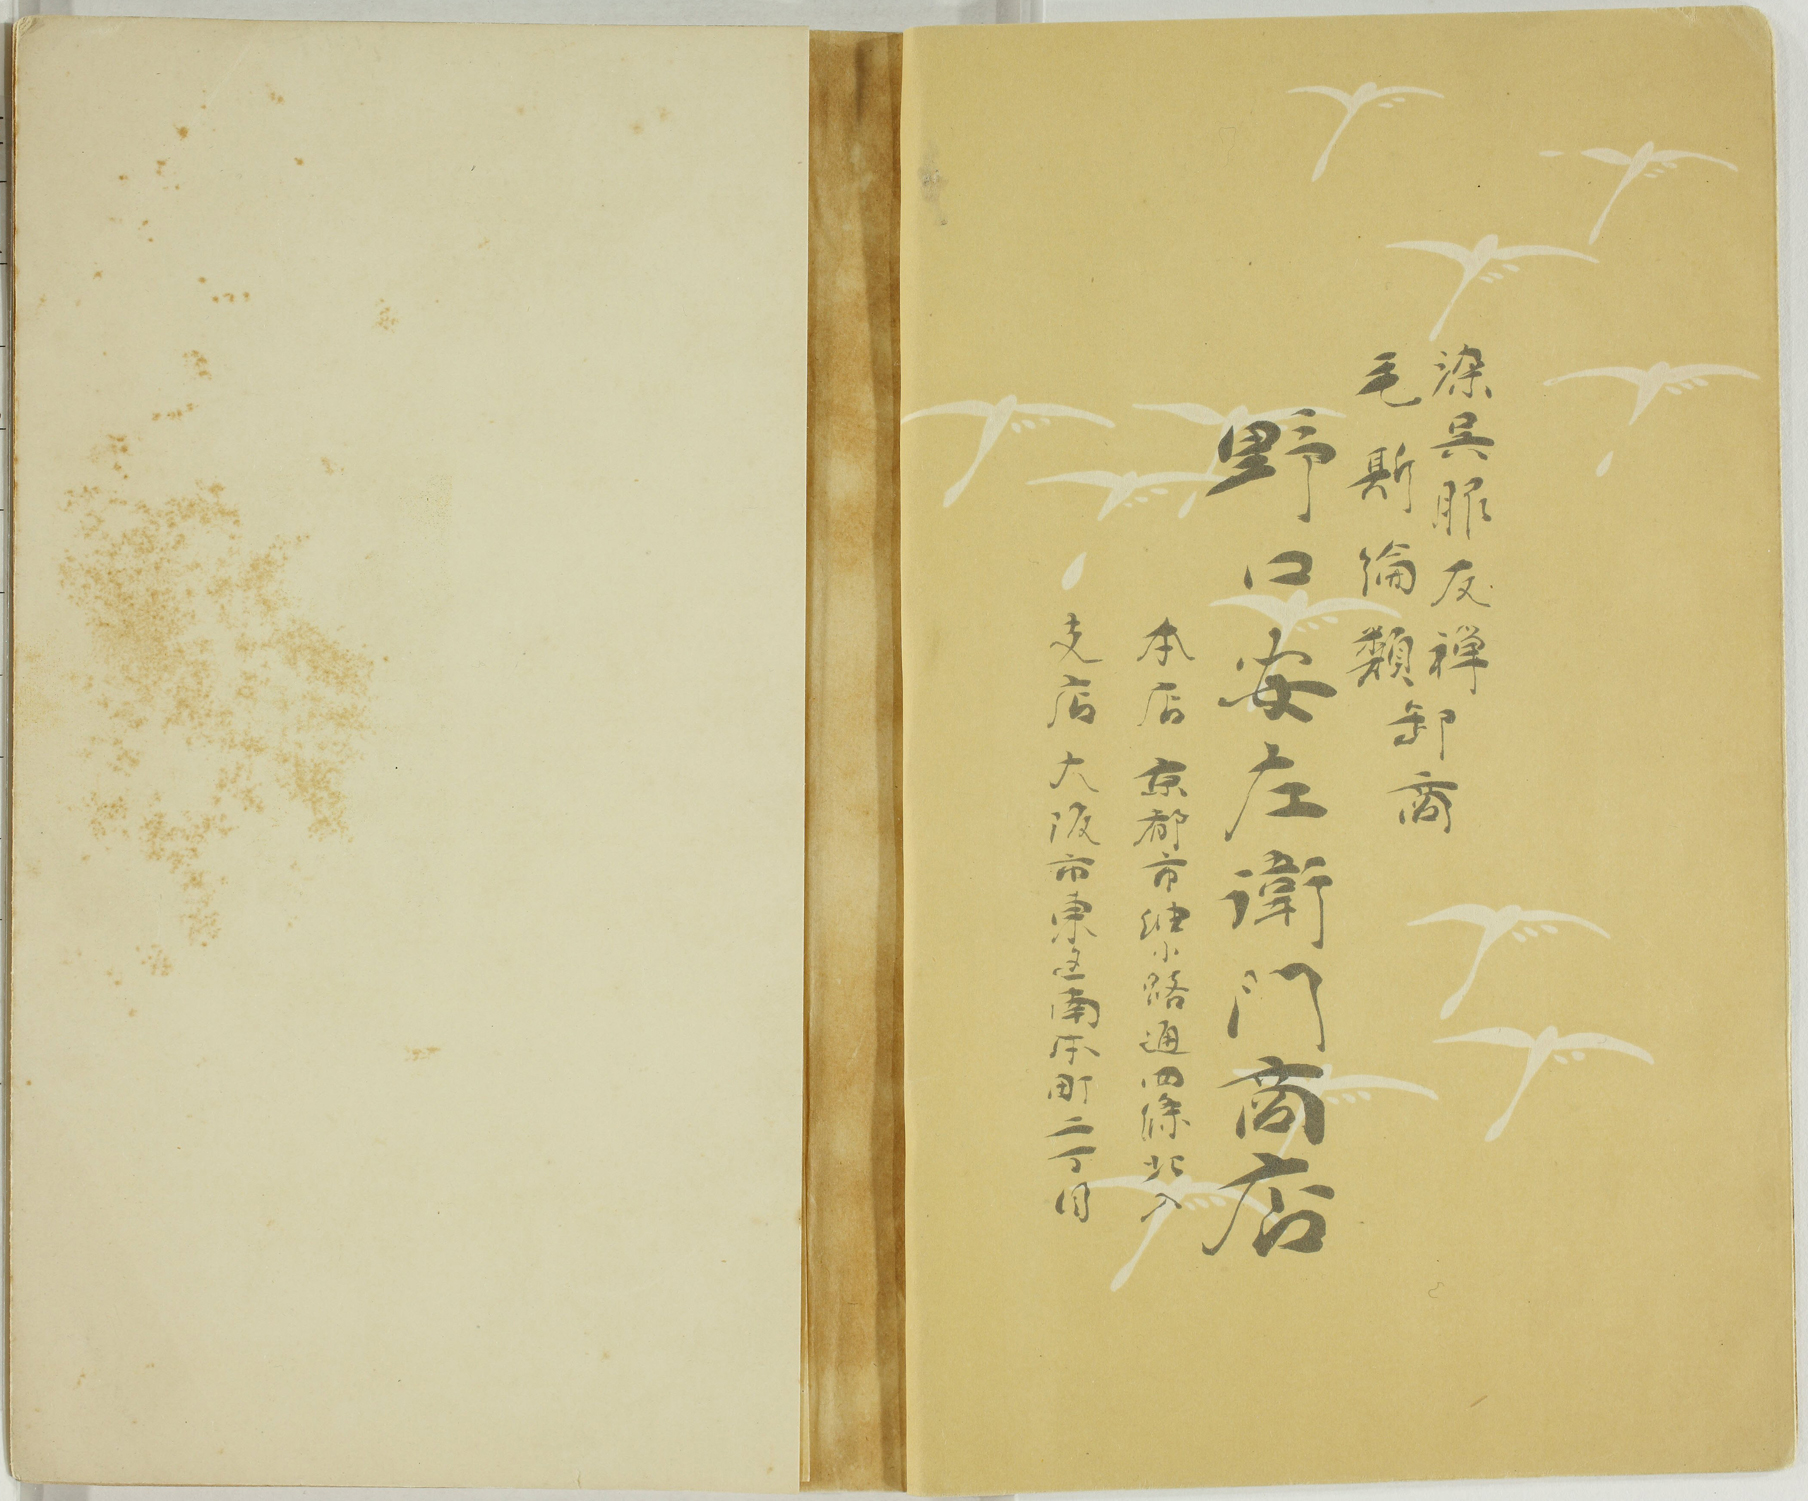 染呉服友禅
毛斯綸類
卸商
野口安左衛門商店
本店 京都市油小路通四條北入
支店 大阪市東区南本町二丁目